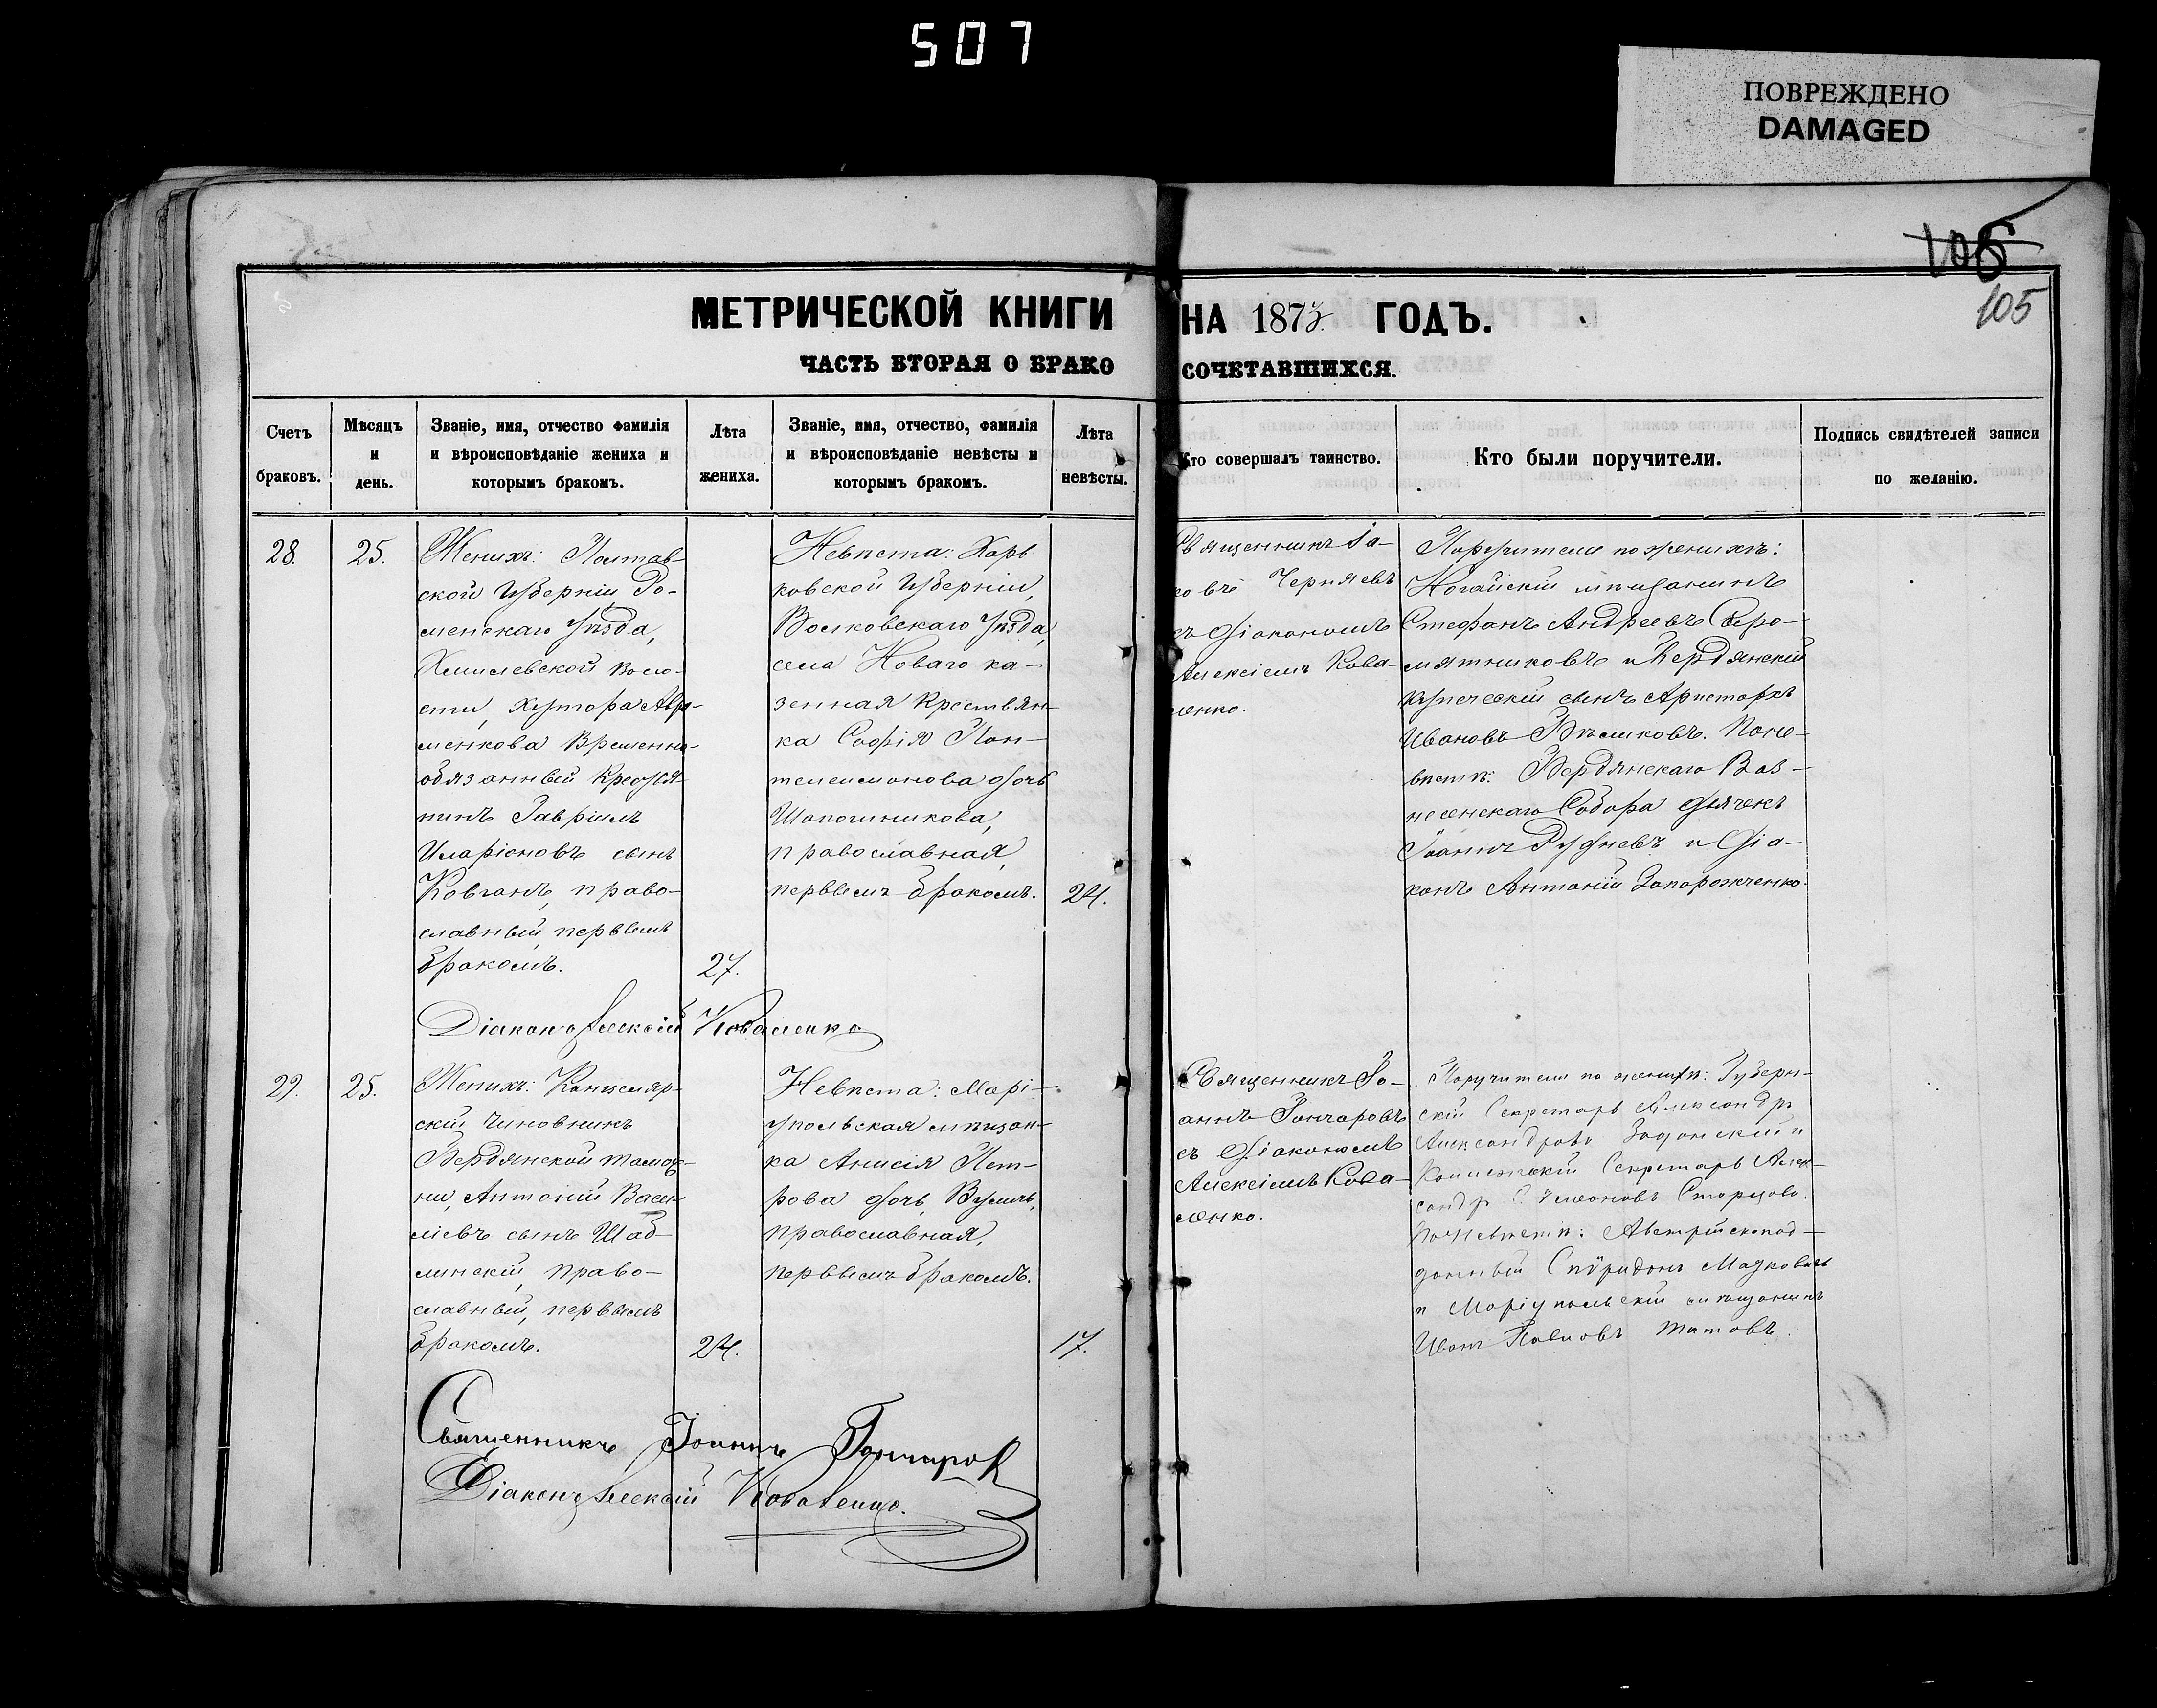 507
ПОВРЕЖДЕНО
DAMAGED
105
105
МЕТРИЧЕСКОЙ КНИГИ НА 1873 ГОДЪ.
ЧАСТЬ ВТОРАЯ О БРАКОСОЧЕТАВШИХСЯ.
Счетъ браковъ.
Мѣсяцъ и день.
Званіе, имя, отчество фамилія
и вѣроисповѣданіе жениха и
которымъ бракомъ.
Лѣта жениха.
Званіе, имя, отчество, фамилія
и вѣроисповѣданіе невѣсты и
которымъ бракомъ.
Лѣта невѣсты.
Кто совершалъ таинство.
Кто были поручители.
Подпись свидѣтелей записи
по желанію.
28.
25.
Женихъ: Полтав-
ской Губерніи Ро-
менскаго Уѣзда,
Хмилевской воло-
сти, хутора
временно-
обязанный крестья-
нинъ Гавріилъ
Иларіоновъ сынъ
Ковганъ, право-
славный, первымъ
бракомъ.
27.
Невѣста: Харь
ковской Губерніи,
Волковскаго Уѣзда,
села Новаго ка-
зенная крестьян-
ка Софія Пан-
телеимонова дочь
Шапошникова,
православная,
первымъ бракомъ.
24.
Священникъ Іа-
ковъ Черняевъ
съ Діакономъ
Алексіемъ Кова-
ленко.
Поручители по женихѣ:
Ногайскій мѣщанинъ
Стефанъ Андреевъ Серо-
мятниковъ и Бердянскій
купеческій сынъ Аристархъ
Ивановъ Бѣликовъ. По не-
вѣстѣ: Бердянскаго Воз-
несенскаго Собора дьячекъ
Іоаннъ Рудневъ и Діа-
конъ Антоній Запорожченко.
Діаконъ Алексій Коваленко
29.
25.
Женихъ: Канцеляр-
скій чиновникъ
Бердянской тамож-
ни, Антоній Васи-
ліевъ сынъ Шаб-
линскій, право-
славный, первымъ
бракомъ.
24.
Невѣста: Марі-
упольская мѣщан-
ка Анисія Пет-
рова дочь,
православная,
первымъ бракомъ.
17.
Священникъ Іо-
аннъ Гончаровъ
съ Діакономъ
Алексіемъ Кова-
ленко.
Поручители по женихѣ: Губерн-
скій Секретарь Александръ
Александровъ и
Коллежскій Секретарь Алек-
сандръ
По невѣстѣ: Австрійскопод-
данный Спиридонъ
и Маріупольскій мѣщанинъ
Иванъ Павловъ Татовъ.
Священникъ Іоаннъ Гончаровъ
Діаконъ Алексій Коваленко.